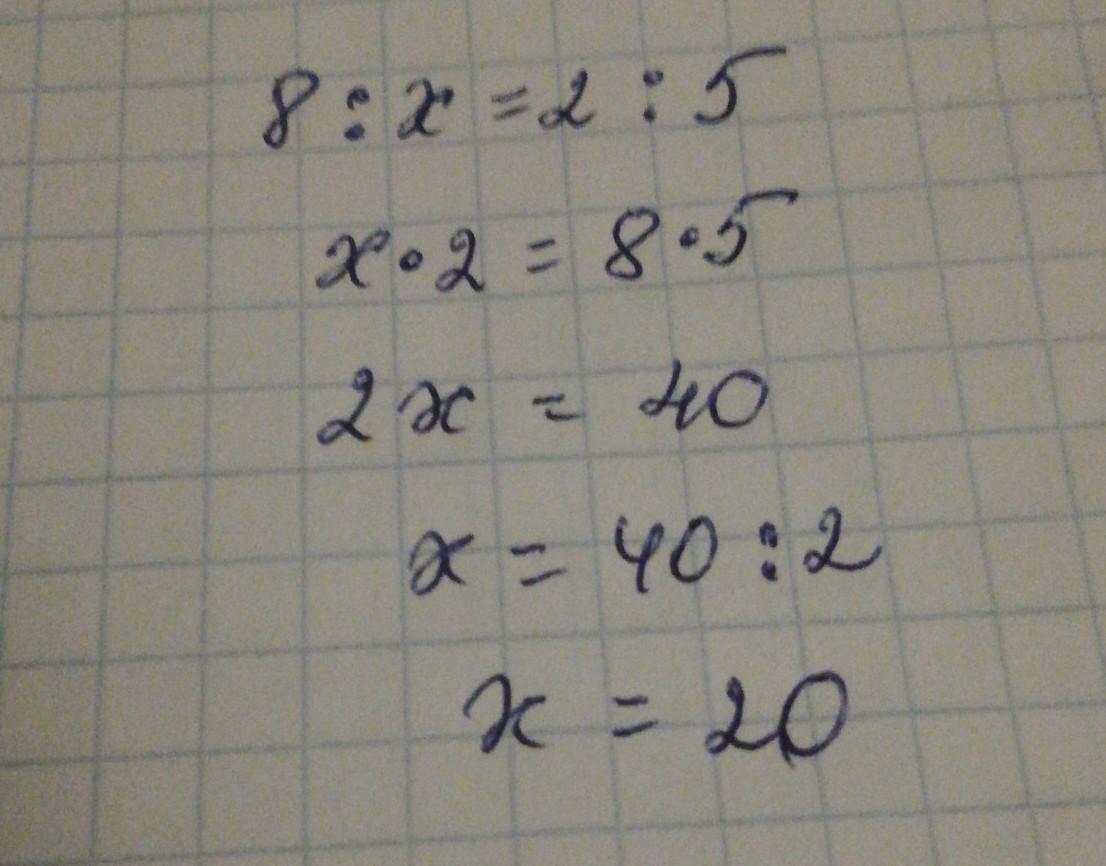 8 : x = 2 : 5
x · 2 = 8 · 5
2x = 40
x = 40 : 2
x = 20